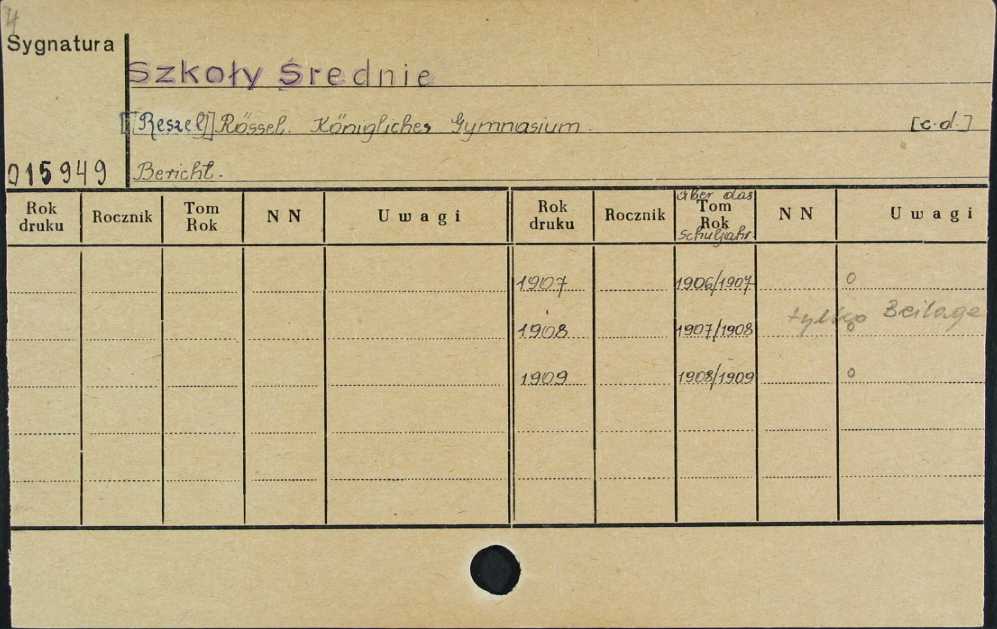 4
Sygnatura
Szkoły Średnie
[Reszel] Rössel. Königliches Gymnasium. [c.d.]
015949 Bericht.
Rok druku Rocznik Tom Rok NN Uwagi Rok druku Rocznik über das Tom Rok Schuljahr. NN Uwagi
1907 1906/1907 o
1908 1907/1908 tylko Beilage
1909 1908/1909 o